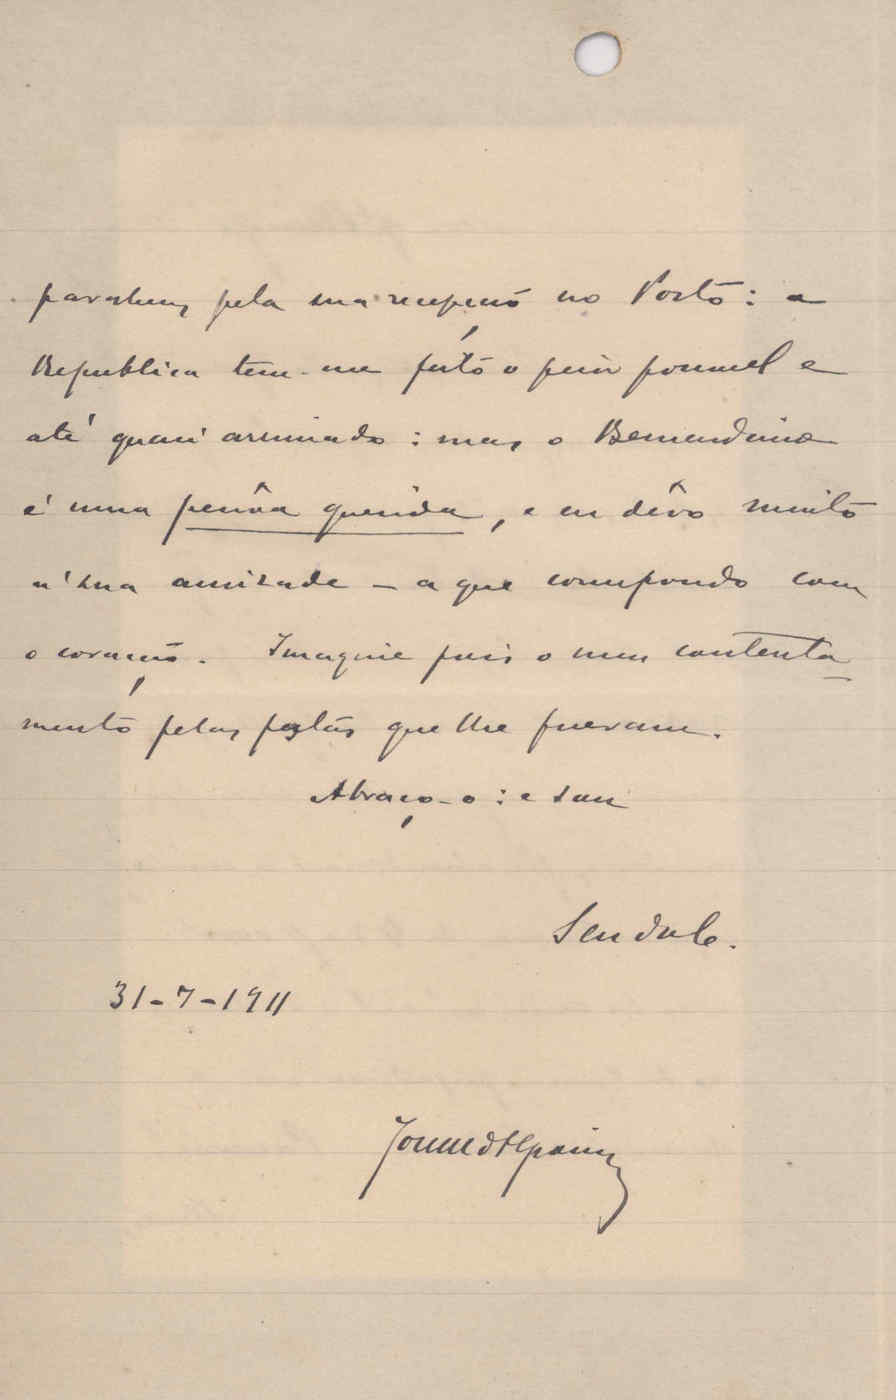 parabens pela sua recepção no Porto: a
Republica tem-me feito o peior possivel e
até quasi arruinado: mas o Bernardino
é uma pessôa querida, e eu dêvo muito
á sua amizade – a que correspondo com
o coração. Imagine pois o meu contenta
mento pelas festas que lhe fizeram.
Abraço-o: e sou
Seu
31-7-1911